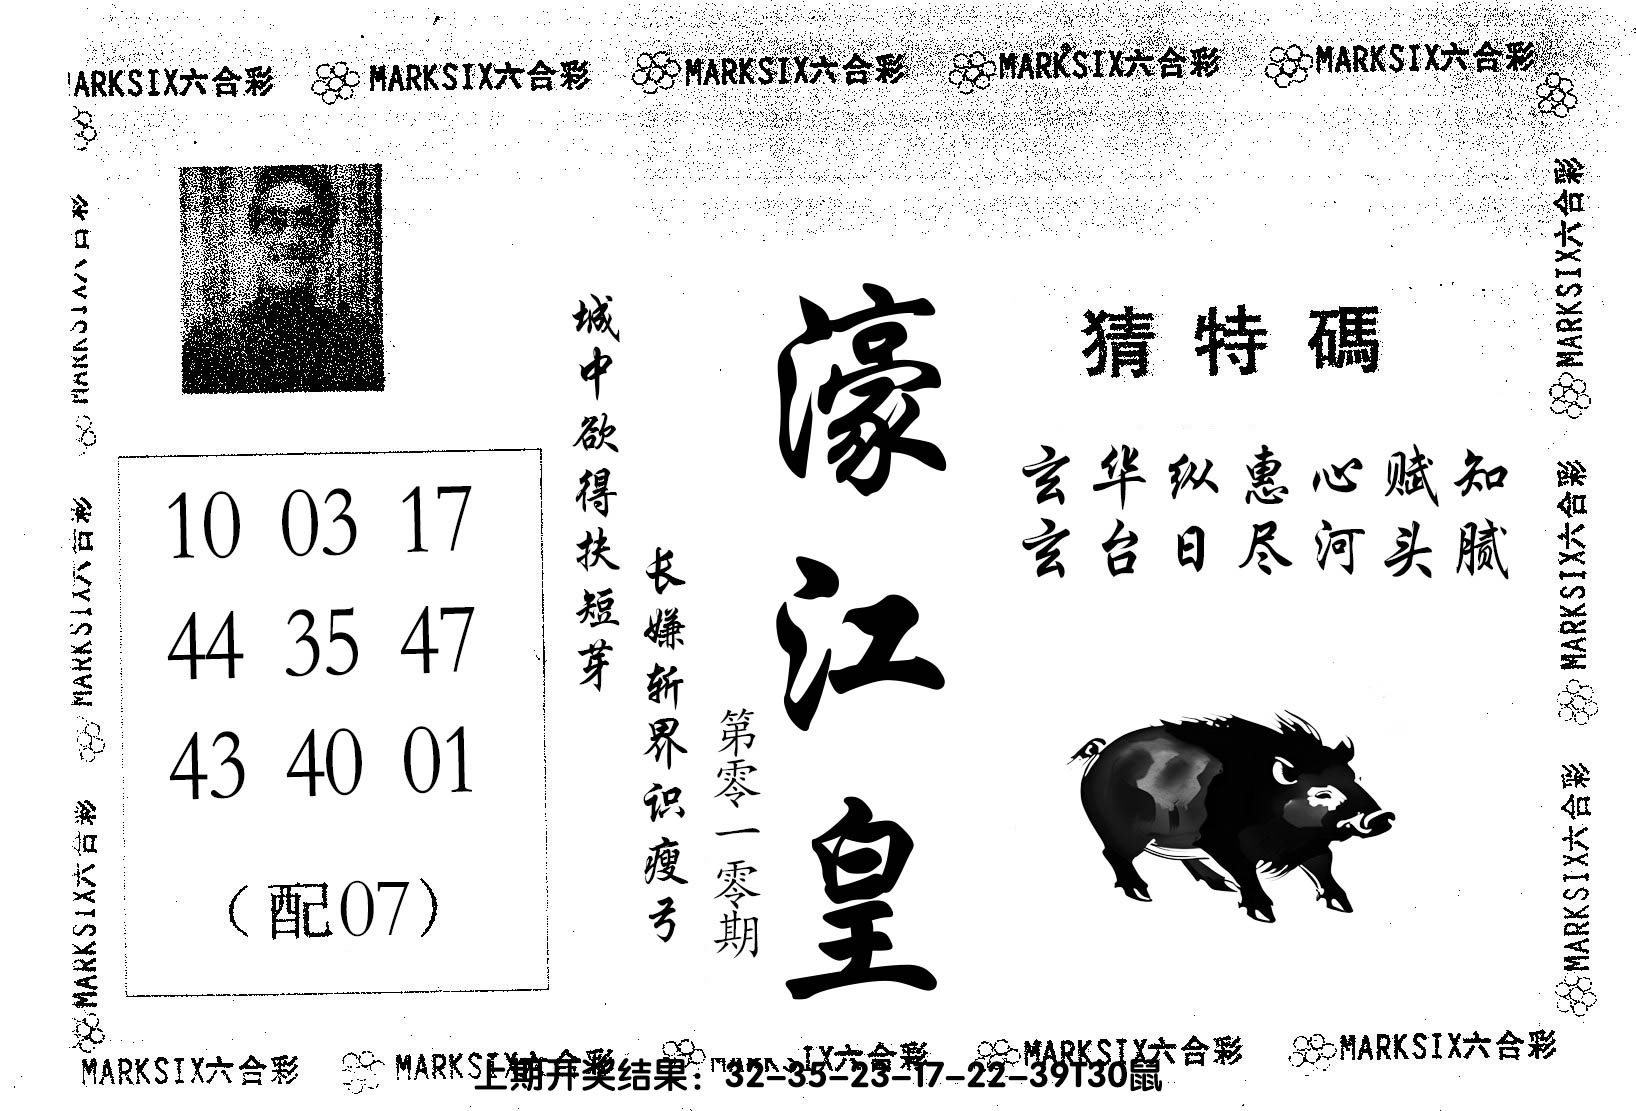 MARKSIX六合彩 MARKSIX六合彩 MARKSIX六合彩 MARKSIX六合彩
ARKSIX六合彩
猜特碼
玄华纵惠心赋知
玄台日尽河头腻
濠江皇
第零一零期
城中欲得扶短芽
长嫌斩界识瘦弓
10 03 17
44 35 47
43 40 01
(配07)
MARKSIX六合彩
MARKSIX六合彩
MARKSIX六合彩
MARKSIX六合彩
MARKSIX六合彩
MARKSIX六合彩 MARKSIX六合彩 MARKSIX六合彩 MARKSIX六合彩
上期开奖结果：32-35-23-17-22-39T30鼠